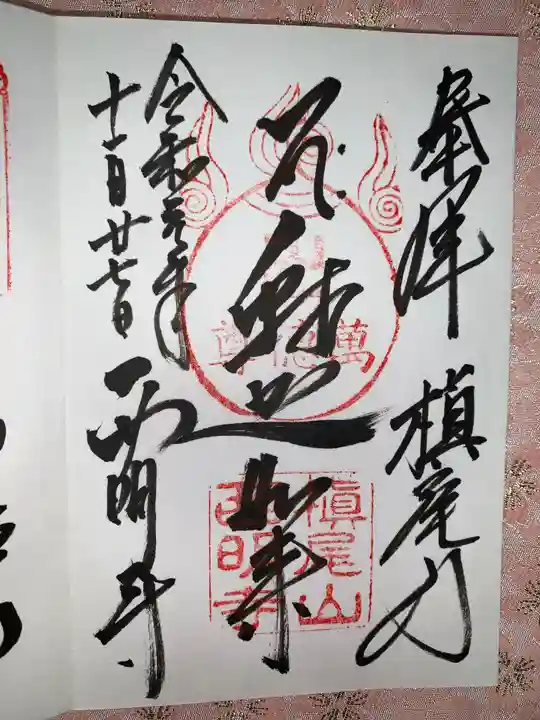 奉拝　槇尾山
釈迦如来
令和元年
十一月廿七日
西明寺
槇尾山
西明寺